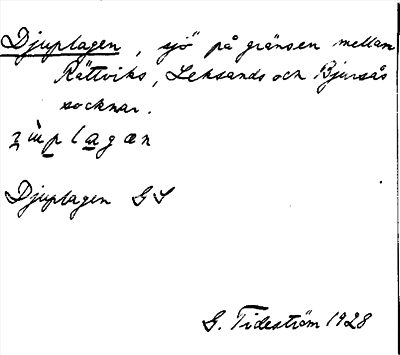 Djuplagen, sjö på gränsen mellan
Rättviks, Leksands och Bjursås
socknar.
Djuplagen GS
G. Tideström 1928